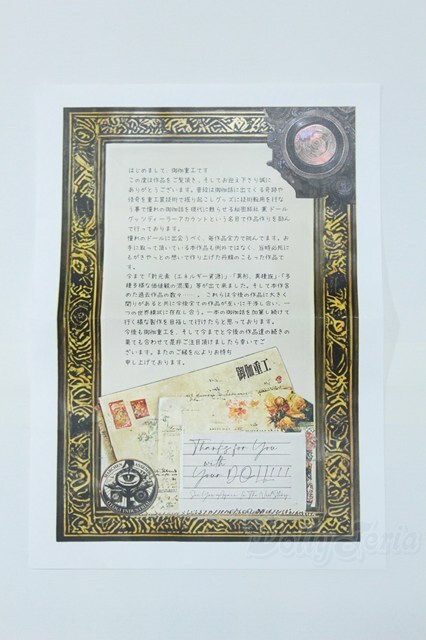 はじめまして、御伽重工です
この度は作品をご覧頂き、そしてお迎え下さり誠に
ありがとうございます。普段は御伽話に出てくる奇跡や
技術を重工業技術で掘り起こしグッズに技術転用を行な
う事で憧れの御伽話を現代に甦らせる秘密結社 兼 ドール
グッツディーラーアカウントという名目で作品作りを励ん
で行っております。
憧れのドールに出会うべく、毎作品全力で挑んでます。お
手に取って頂いている本作品も例外ではなく、当時必死に
もがきやっとの想いで作り上げた丹精のこもった作品で
す。
今まで「新元素(エネルギー資源)」「異形、異種族」「多
種多様な価値観の混濁」等が出て来ました。そして本作含
めた過去作品の数々...。これらは今後の作品に大きく
関りがあると共に今後全ての作品が互いに干渉し合い、一
つの世界線状に存在し合う。一本の御伽話を加筆し続けて
行く様な製作を目指して行けたらと思っております。
今後も御伽重工を、そして今までと今後の作品達の続きの
果ても合わせて是非ご注目頂けましたら幸いでご
ざいます。またのご縁を心よりお待ち
申し上げております。
御伽重工
Thanks for You
with
Your DOLL!!!
DollyTeria